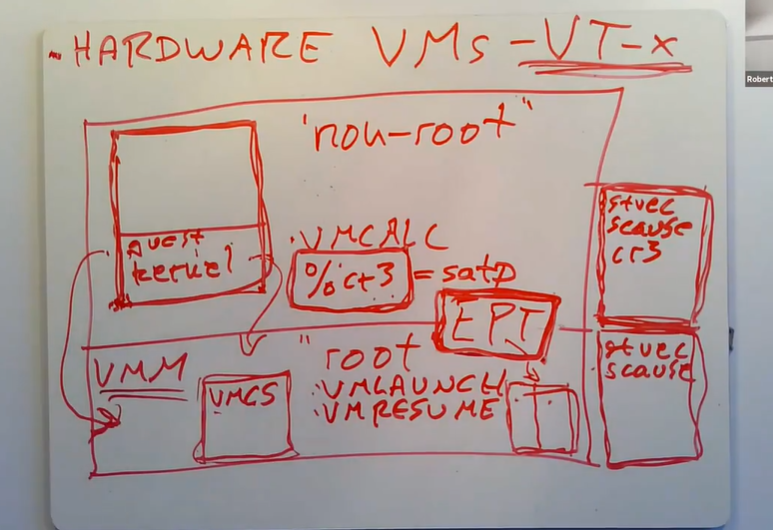 HARDWARE VMs - VT-x
"non-root"
guest
kernel
VMCALC
%cr3 = satp
EPT
stvec
scause
cr3
VMM
VMCS
"root
VMLAUNCH
VMRESUME
stvec
scause
Robert